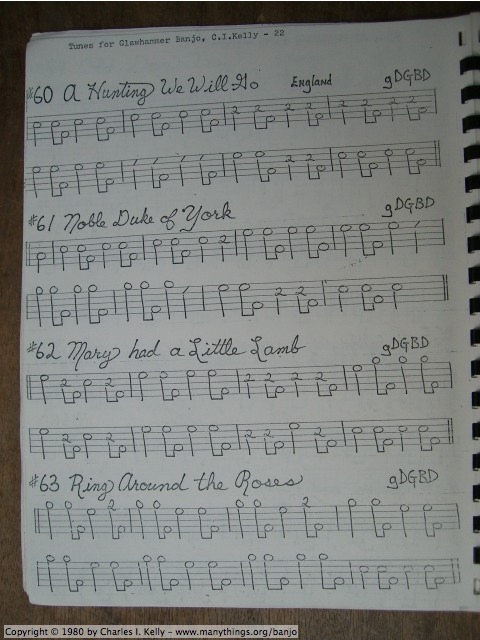 Tunes for Clawhammer Banjo, C.I.Kelly - 22
#60 A Hunting We Will Go England gDGBD
#61 Noble Duke of York gDGBD
#62 Mary had a Little Lamb gDGBD
#63 Ring Around the Roses gDGBD
Copyright © 1980 by Charles I. Kelly - www.manythings.org/banjo